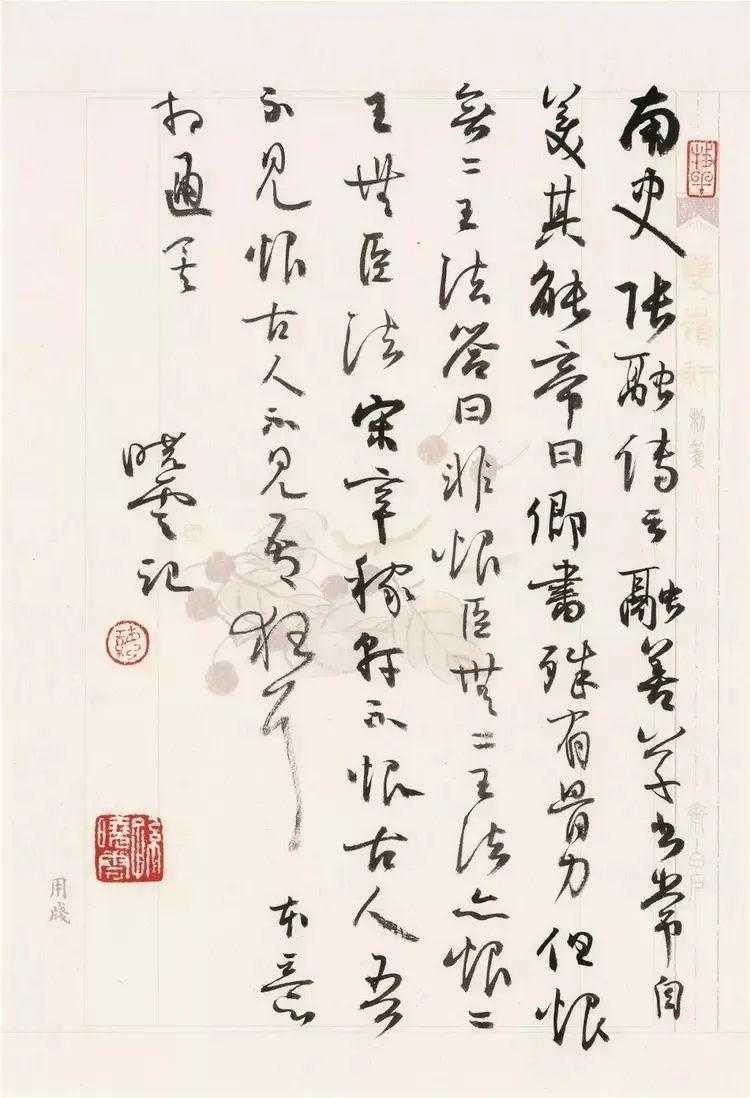 南史張融傳云融善草書常自
美其能帝曰卿書殊有骨力但恨
無二王法答曰非恨臣無二王法亦恨二
王無臣法宋辛稼軒不恨古人吾
不見恨古人不見吾狂耳 本意
相通矣
曉雲記
孫曉雲
白石
用牋